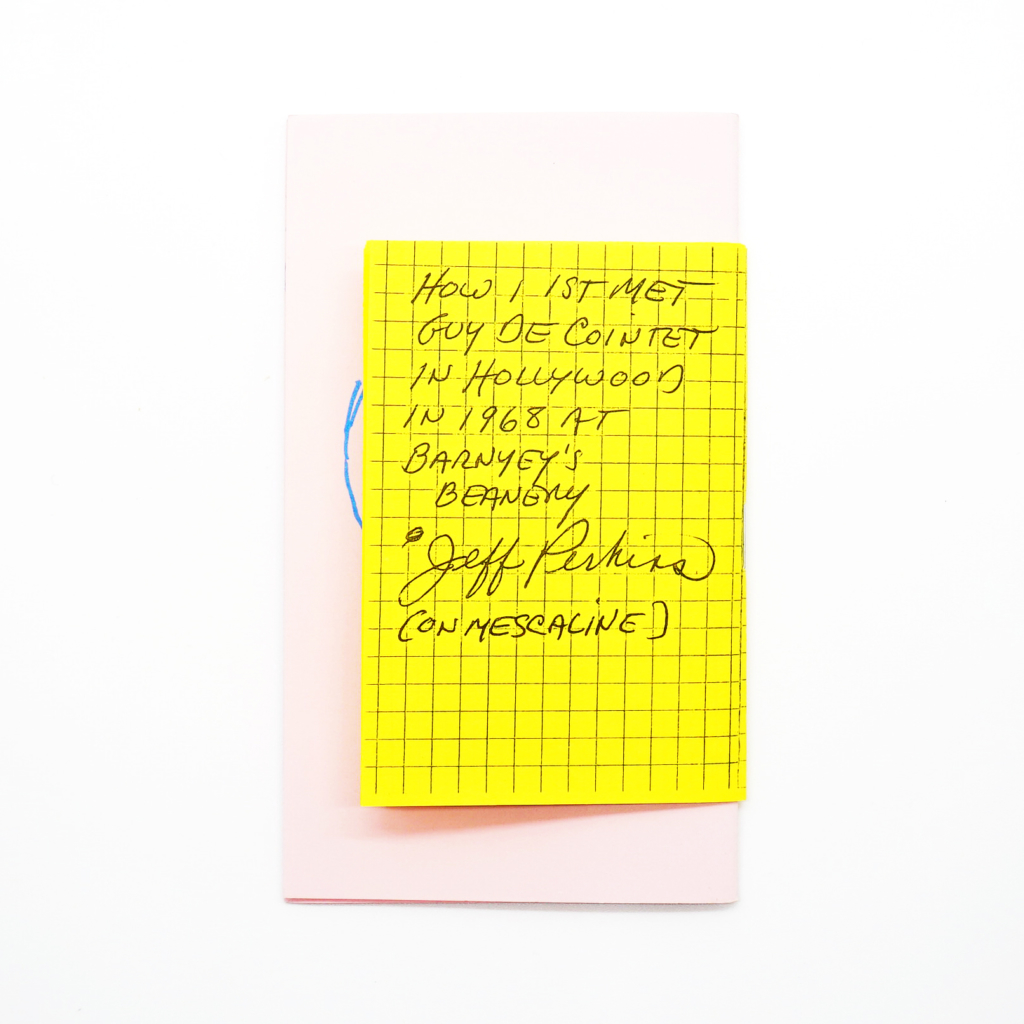 HOW I 1ST MET
GUY DE COINTET
IN HOLLYWOOD
IN 1968 AT
BARNYEY'S
BEANERY
Jeff Perkins
(ON MESCALINE)